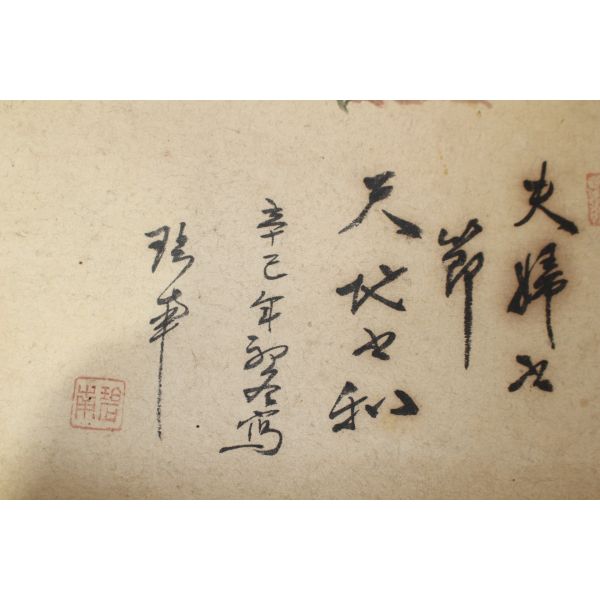 夫婦之
節
天地之和
辛巳年初冬寫
碧
碧